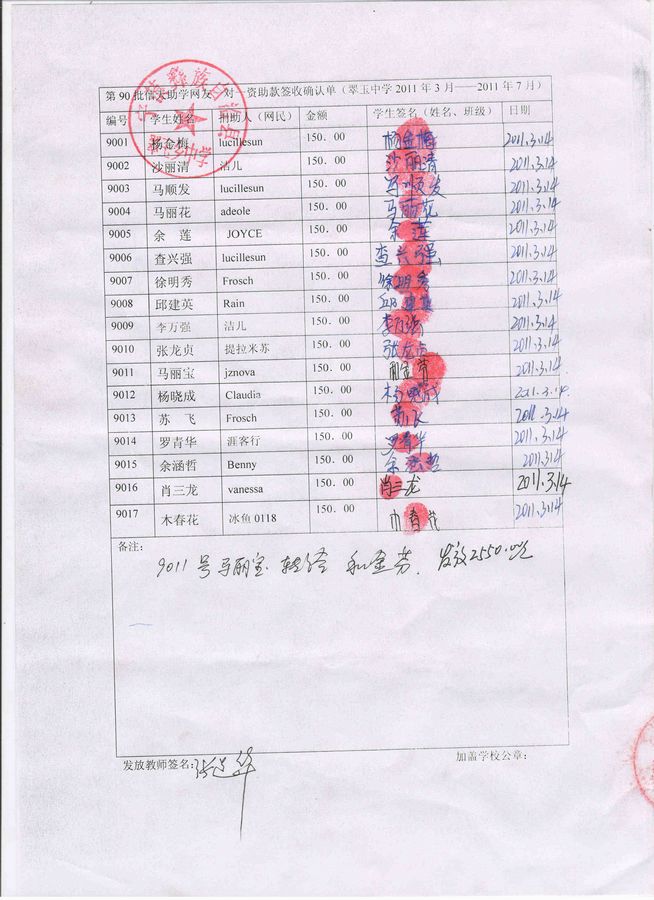 第90批信天助学网友一对一资助款签收确认单（翠玉中学2011年3月——2011年7月）
编号 学生姓名 捐助人（网民） 金额 学生签名（姓名、班级） 日期
9001 杨金梅 lucillesun 150.00 杨金梅 2011.3.14
9002 沙丽清 洁儿 150.00 沙丽清 2011.3.14
9003 马顺发 lucillesun 150.00 马顺发 2011.3.14
9004 马丽花 adeole 150.00 马丽花 2011.3.14
9005 余 莲 JOYCE 150.00 余莲 2011.3.14
9006 查兴强 lucillesun 150.00 查兴强 2011.3.14
9007 徐明秀 Frosch 150.00 徐明秀 2011.3.14
9008 邱建英 Rain 150.00 邱建英 2011.3.14
9009 李万强 洁儿 150.00 李万强 2011.3.14
9010 张龙贞 提拉米苏 150.00 张龙贞 2011.3.14
9011 马丽宝 jznova 150.00 和金芬 2011.3.14
9012 杨晓成 Claudia 150.00 杨晓成 2011.3.14.
9013 苏 飞 Frosch 150.00 苏飞 2011.3.14
9014 罗青华 涯客行 150.00 罗青华 2011.3.14
9015 余涵哲 Benny 150.00 余涵哲 2011.3.14
9016 肖三龙 vanessa 150.00 肖三龙 2011.3.14
9017 木春花 冰鱼0118 150.00 木春花 2011.3.14
备注：
9011号马丽宝转给和金芬．发放2550.00元
发放教师签名： 加盖学校公章：